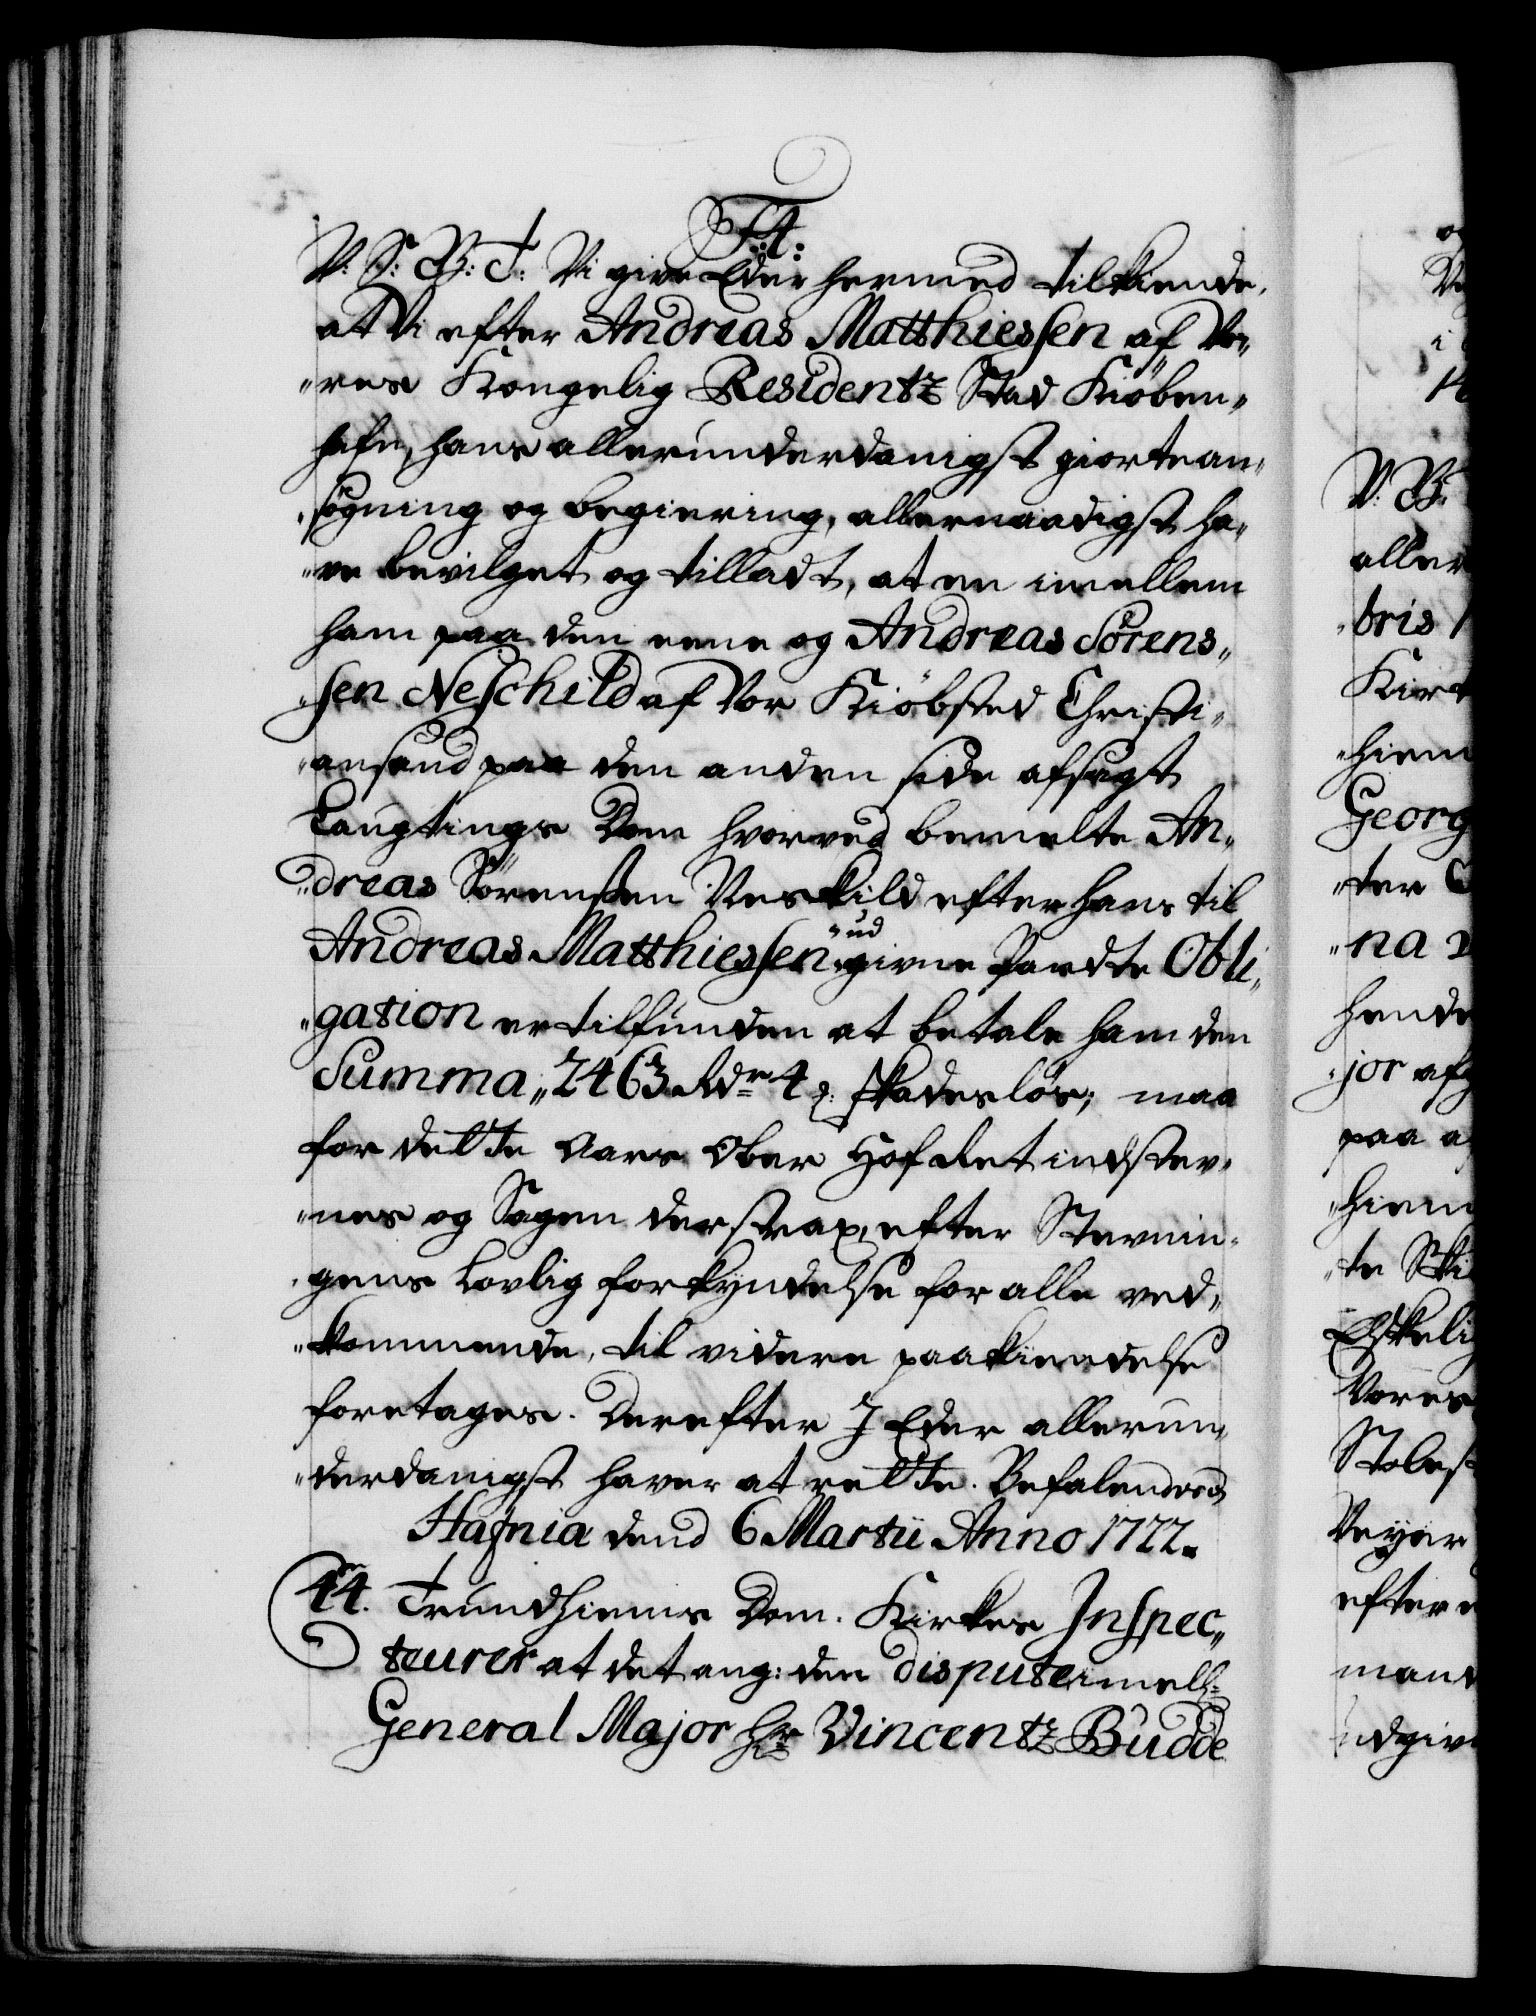 F: 4:
V: S: B: T: Vi give Eder hermed tilkiende,
at Vi efter Andreas Matthiessen af Vo„
„res Kongelig Residentz Stad Kiöben„
hafn, hans allerunderdanigst giorte an„
„søgning og begiering, allernaadigst ha„
„ve bevilget og tilladt, at en imellem
ham paa den eene og Andreas Sörens„
„sen Neschild af Vor Kiöbsted Christi„
„ansand paa den anden side afsagt
Laugtings Dom hvorved bemelte An„
„dreas Sörensen Neskild efter hans til
Andreas Matthiessen „ud„givne Pandte Obli„
„gation er tilfunden at betale ham den
Summa „2463 Rdr 4 s: skadesløs; maa
for dette Aars Ober Hof Ret indstev„
„nes og Sagen der strax, efter Stevnin„
„gens Lovlig forkyndelse for alle ved„
„kommende, til videre paakiendelse
foretages. Derefter J Eder allerun„
„derdanigst haver at rette. Befalendes
Hafnia dend 6 Martii Anno 1722.
44. Trundhiems Dom. Kirkes Inspec„
teurer at det ang: den dispute imell:
General Major Hr Vincentz Budde
og
V: B:
aller
„bris
Kirk
„hiem
Georg
„ter
„na
hende
„jor afg
paa
„hiem
„te Ski
Elskelig
Vores
Stolest
Veyer
efter
mand
udgiv